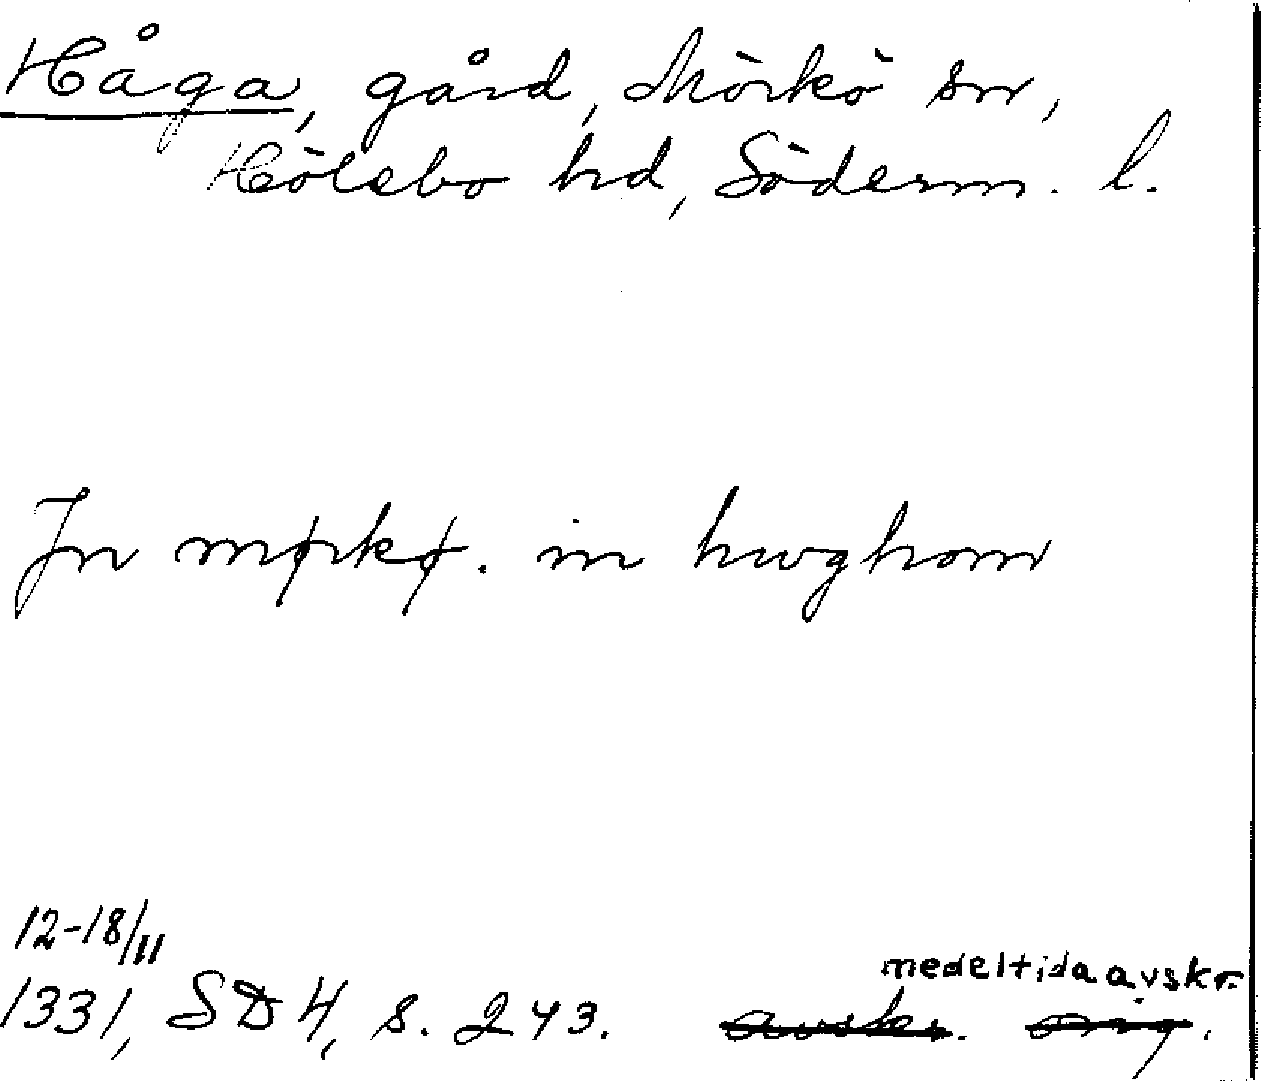 Håga, gård, Mörkö sn,
Hölebo hd, Söderm. l.
Jn mørkø. in hwghom
12-18/11
1331, SD 4, s. 243. medeltida avskr.
avskr. orig.